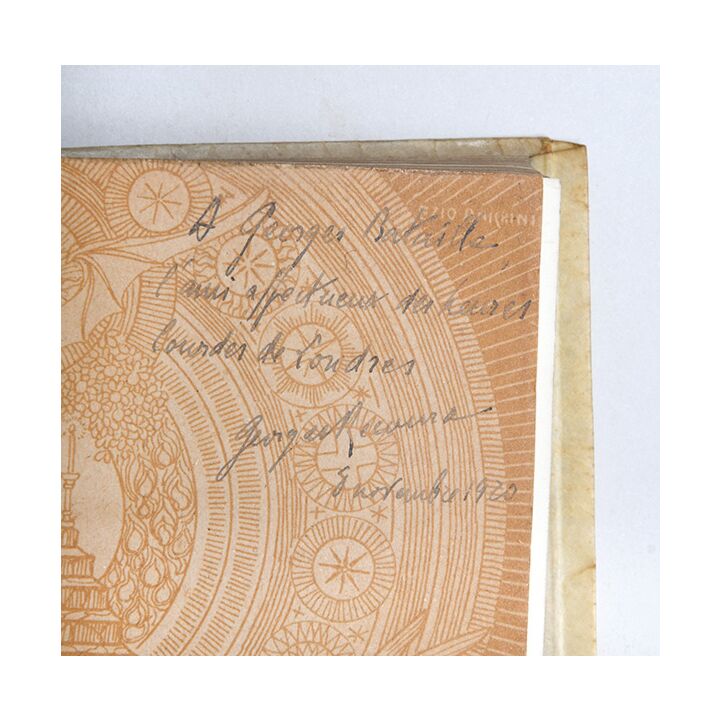 EZIO ANICHINI
A Georges Bataille,
l'ami affectueux des heures
lourdes de Londres
Georges
8 novembre 1920